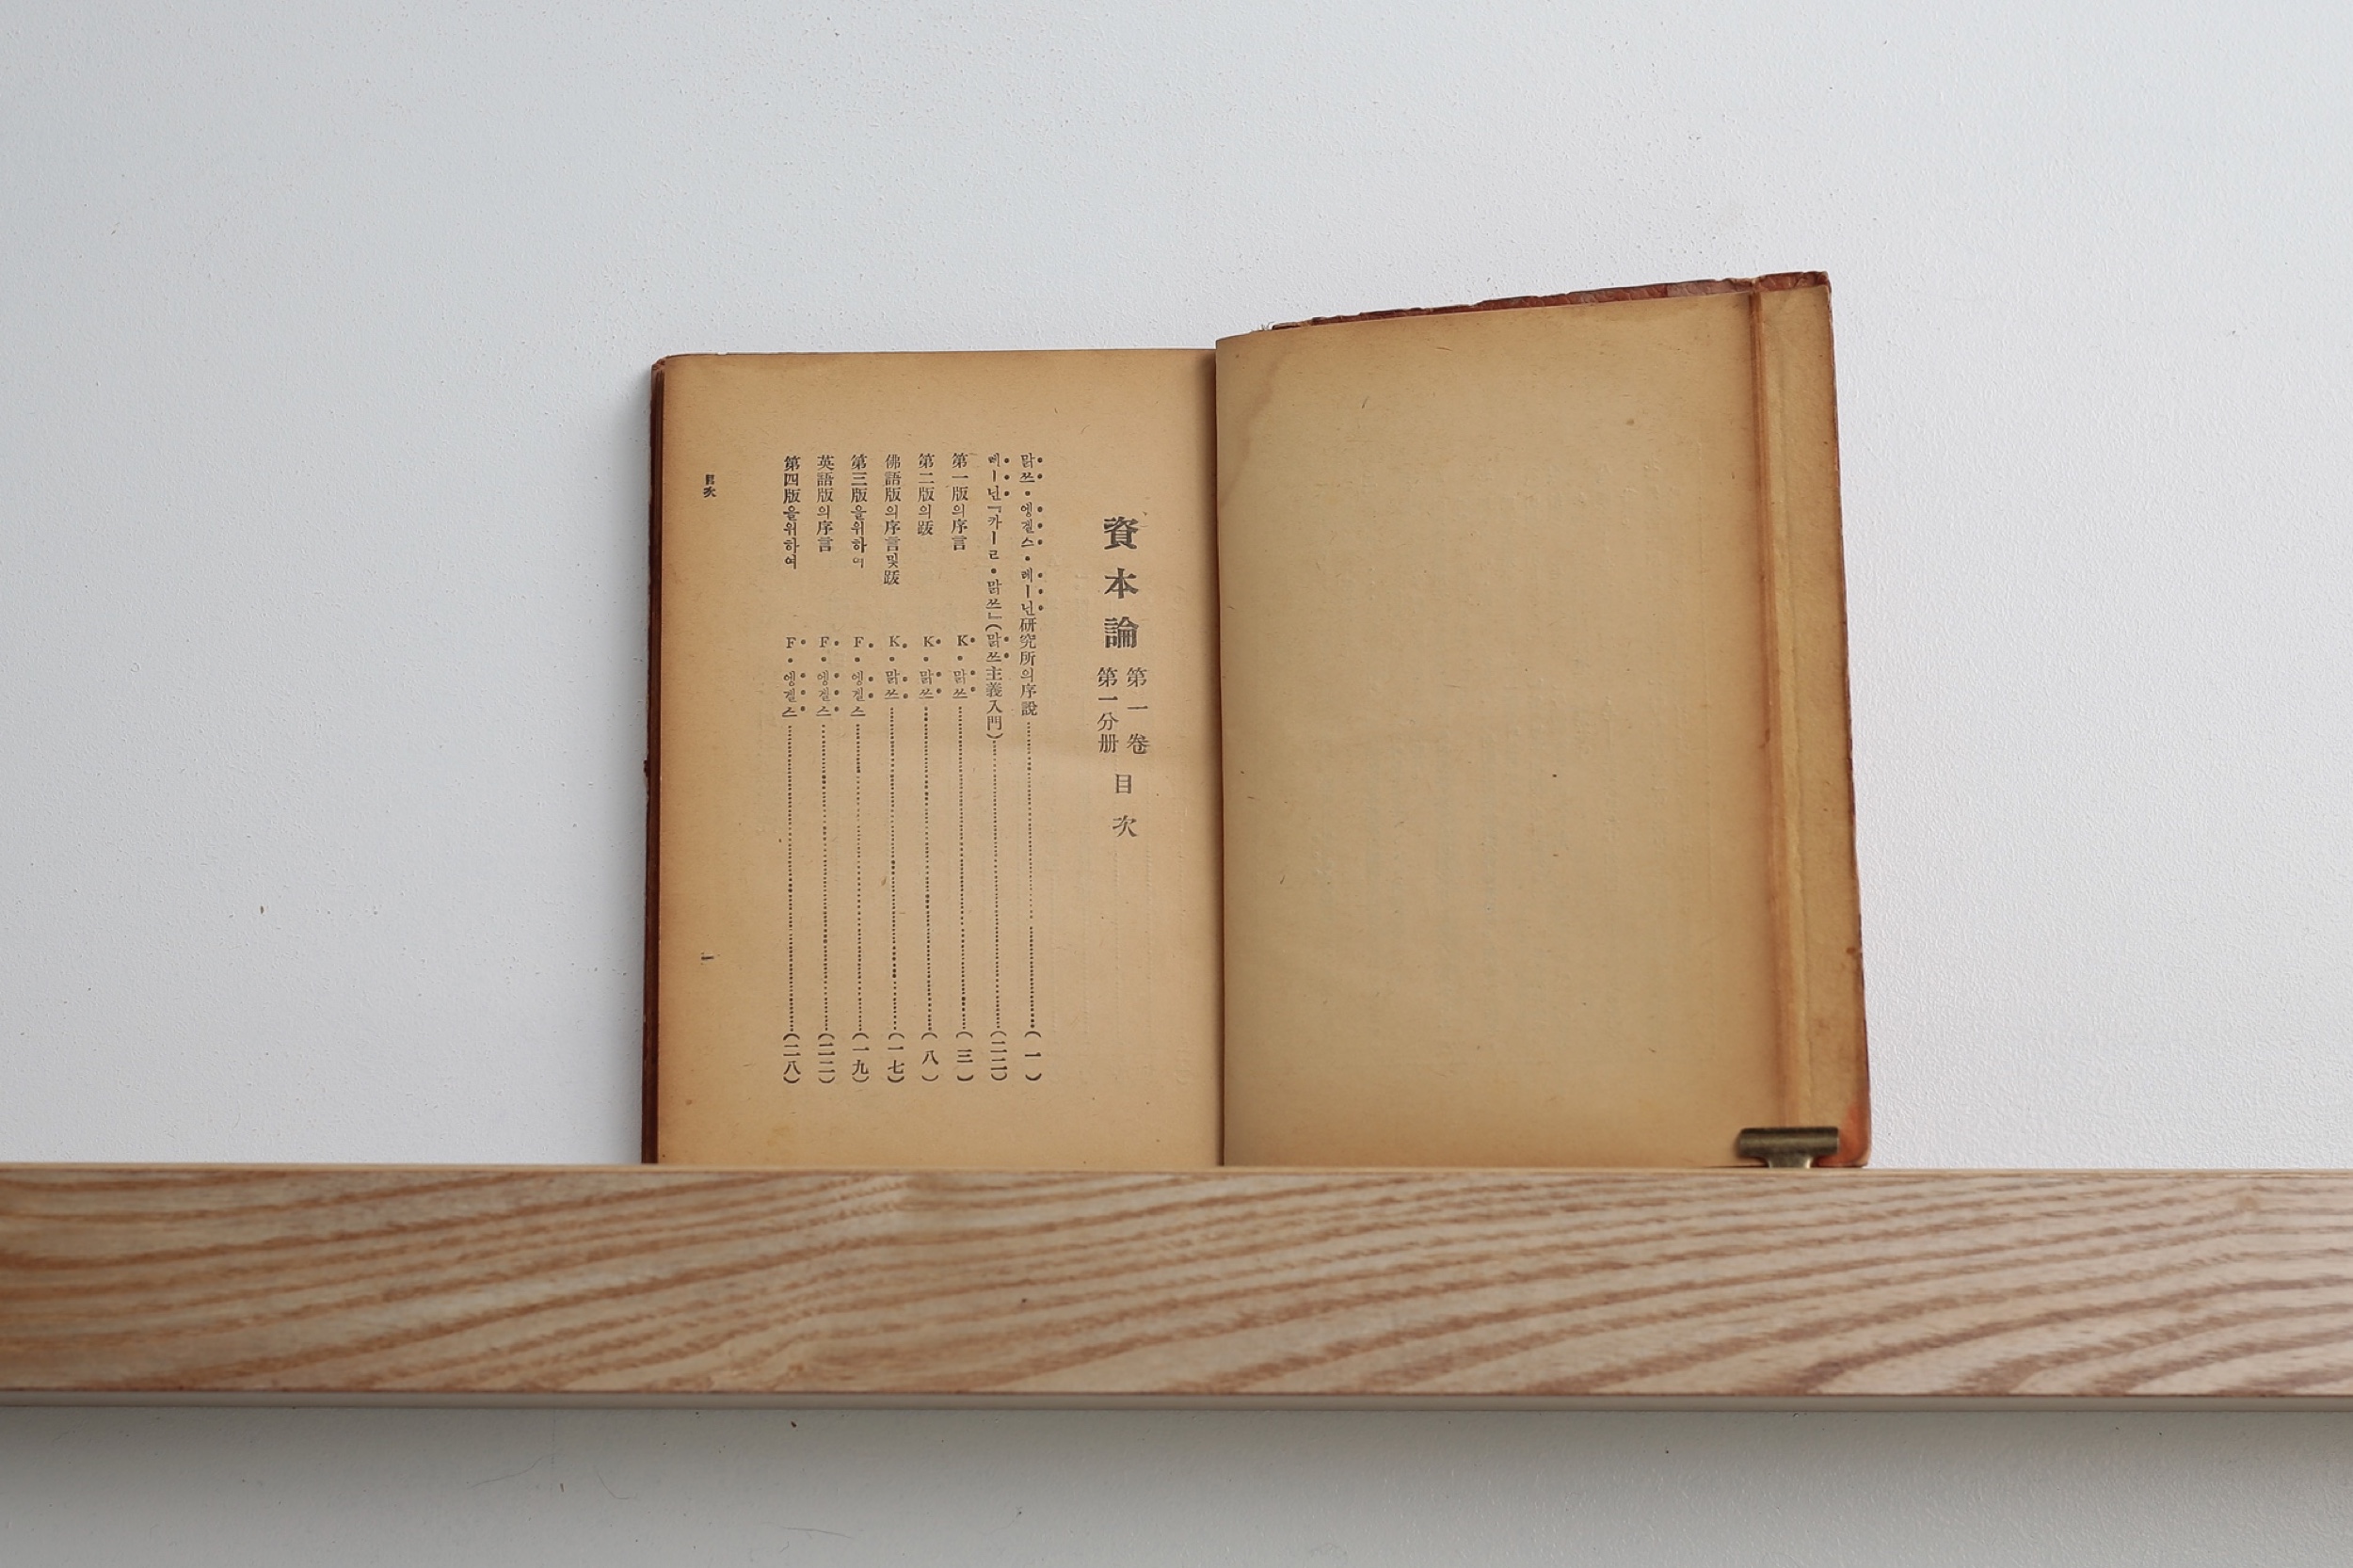 資本論 第一卷 第一分册 目次
맑쓰・엥겔스・레ー닌研究所의序說 (一)
레ー닌『카ーㄹ・맑쓰』(맑쓰主義入門) (二二)
第一版의序言 K・맑쓰 (三)
第二版의跋 K・맑쓰 (八)
佛語版의序言및跋 K・맑쓰 (一七)
第三版을위하여 F・엥겔스 (一九)
英語版의序言 F・엥겔스 (二三)
第四版을위하여 F・엥겔스 (二八)
目次 一